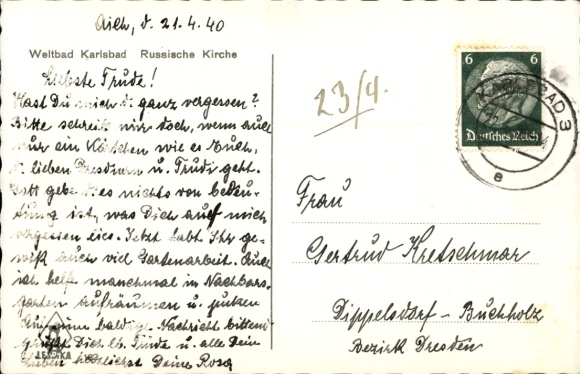 Aich, d. 21.4.40
Weltbad Karlsbad Russische Kirche
Liebste Trude!
Hast Du mich d. ganz vergessen?
Bitte schreib mir doch, wenn auch
nur ein Kärtchen wie es Euch,
d. lieben Dresdnern u. Trudi geht.
Gott gebe d. es nichts von bedeu-
tung ist, was Dich auf mich
vergessen lies. Jetzt habt Ihr ge-
wiß auch viel Gartenarbeit. Auch
ich helfe manchmal in Nachbars-
garten aufräumen u. putzen
Um eine baldige Nachricht bittend
grüßt Dich lb. Trude u. alle Dein
lieben herzlichst Deine Rosa
LEDKA
23/4.
6 6
Deutsches Reich
KARLSBAD 3
e
Frau
Gertrud Kretschmar
Dippelsdorf - Buchholz
Bezirk Dresden